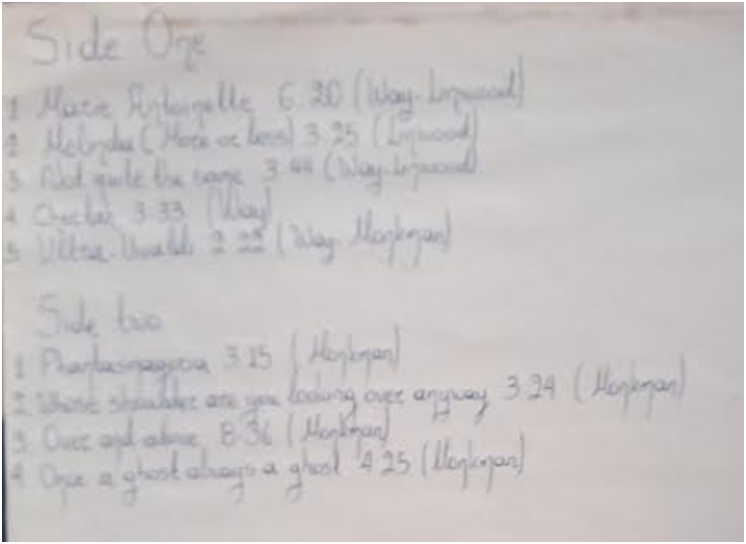 Side One
1 Marie Antoinette 6 20 (Way-Linwood)
2 Melinda (More or less) 3 25 (Linwood)
3 Not quite the same 3 44 (Way-Linwood
4 Cheetah 3:33 (Way)
5 Ultra-Vivaldi 2 22 (Way-Monkman)
Side two
1 Phantasmagoria 3 15 (Monkman)
2 Whose shoulder are you looking over anyway 3 24 (Monkman)
3 Over and above 8 36 (Monkman)
4 Once a ghost always a ghost 4 25 (Monkman)